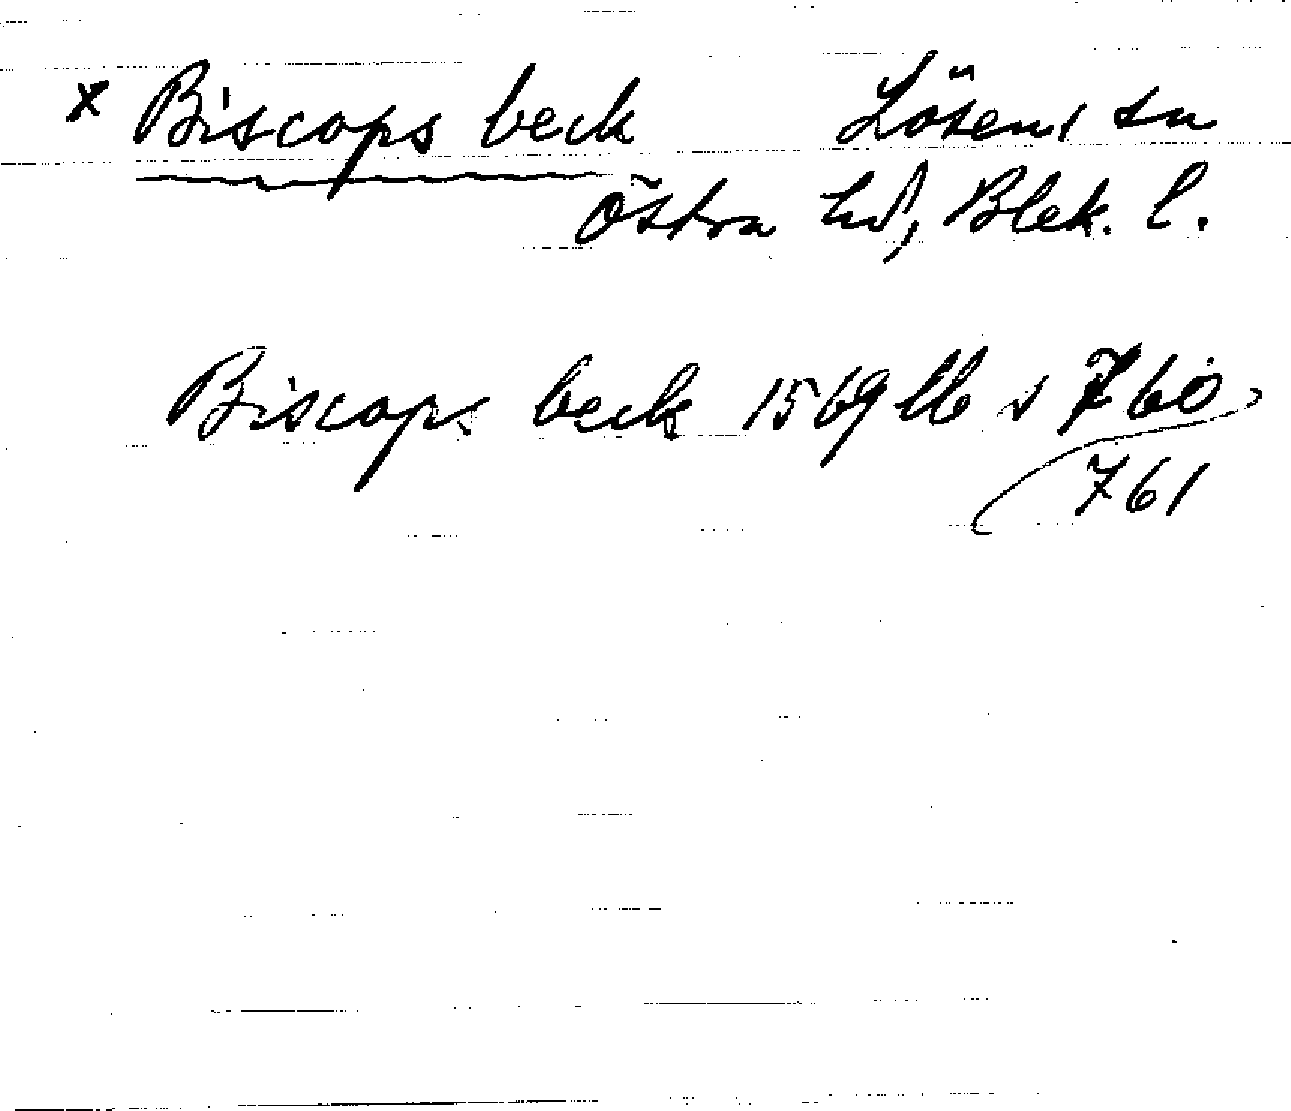 x Biscops beck Lösens sn
Östra hd, Blek. l.
Biscops beck 1569 lb s 760,
761